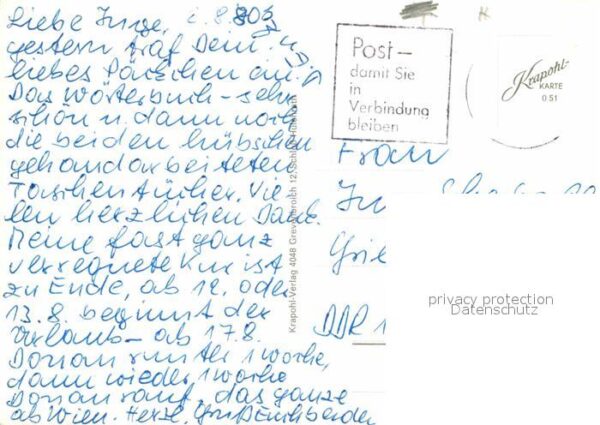 Liebe Inge, 2.8.80
gestern traf Dein
liebes Päckchen ein.
Das Wörterbuch – sehr
schön u. dann noch
die beiden hübschen
gehandarbeiteten
Taschentücher. Vie
len herzlichen Dank.
Meine fast ganz
verregnete Kur ist
zu Ende, ab 12. oder
13.8. beginnt der
Urlaub – ab 17.8.
Donau runter 1 Woche,
dann wieder 1 Woche
Donau rauf, das ganze
ab Wien. Herzl. Gruß Euch beiden
Krapohl-Verlag 4048 Grevenbroich 12
Post –
damit Sie
in
Verbindung
bleiben
Krapohl-
KARTE
0 51
Frau
DDR 1
privacy protection
Datenschutz